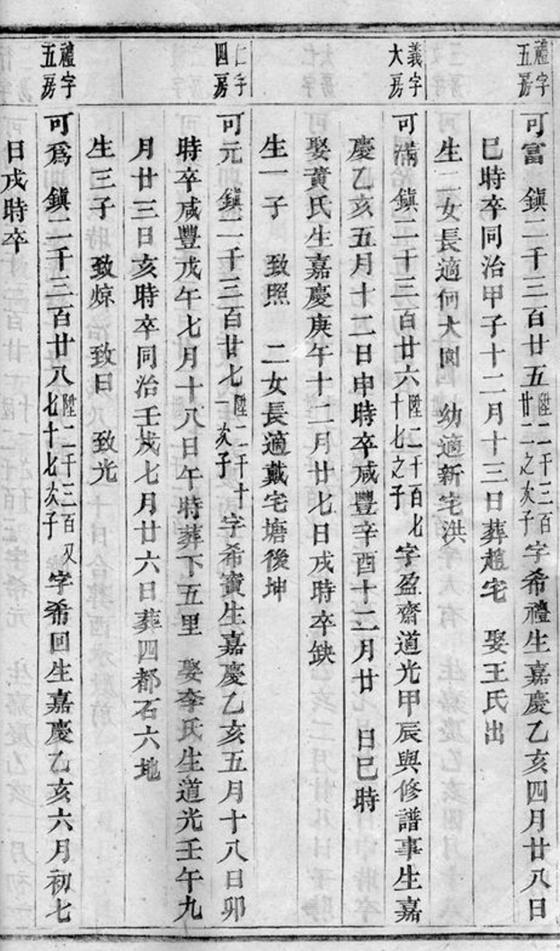 禮字五房
可富 鎮二千三百廿五 陞二千三百廿二之次子 字希禮生嘉慶乙亥四月廿八日
巳時卒同治甲子十二月十三日葬趙宅 娶王氏出
生二女長適何大園 幼適新宅洪
義字大房
可滿 鎮二千三百廿六 陞二千百七十七之子 字盈齋道光甲辰與修譜事生嘉
慶乙亥五月十二日申時卒咸豐辛酉十二月廿 日巳時
娶黃氏生嘉慶庚午十二月廿七日戌時卒缺
生一子 致照 二女長適戴宅塘後坤
仁字四房
可元 鎮二千三百廿七 陞二千十次子 字希寶生嘉慶乙亥五月十八日卯
時卒咸豐戊午七月十八日午時葬下五里 娶李氏生道光壬午九
月廿三日亥時卒同治壬戌七月廿六日葬四都石六地
生三子 致煷 致曰 致光
禮字五房
可為 鎮二千三百廿八 陞二千三百又七十七次子 字希回生嘉慶乙亥六月初七
日戌時卒